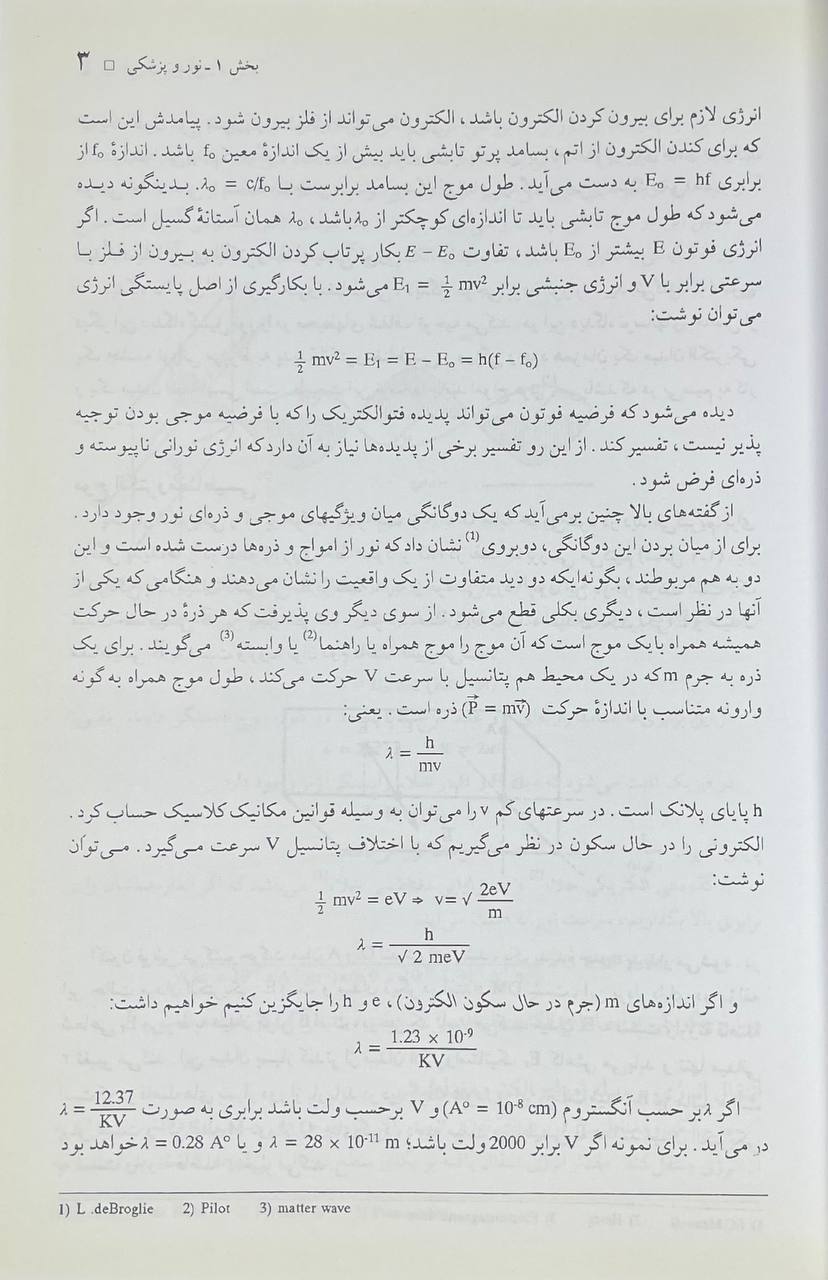 بخش ۱ - نور و پزشکی □ ۳
انرژی لازم برای بیرون کردن الکترون باشد، الکترون می‌تواند از فلز بیرون شود. پیامدش این است
که برای کندن الکترون از اتم، بسامد پرتو تابشی باید بیش از یک اندازهٔ معین f₀ باشد. اندازهٔ f₀ از
برابری E₀ = hf به دست می‌آید. طول موج این بسامد برابرست با λ₀ = c/f₀. بدینگونه دیده
می‌شود که طول موج تابشی باید تا اندازه‌ای کوچکتر از λ₀ باشد، λ₀ همان آستانهٔ گسیل است. اگر
انرژی فوتون E بیشتر از E₀ باشد، تفاوت E – E₀ بکار پرتاب کردن الکترون به بیرون از فلز با
سرعتی برابر با V و انرژی جنبشی برابر E₁ = ½ mv² می‌شود. با بکارگیری از اصل پایستگی انرژی
می‌توان نوشت:
½ mv² = E₁ = E – E₀ = h(f – f₀)
دیده می‌شود که فرضیه فوتون می‌تواند پدیده فتوالکتریک را که با فرضیه موجی بودن توجیه
پذیر نیست، تفسیر کند. از این رو تفسیر برخی از پدیده‌ها نیاز به آن دارد که انرژی نورانی ناپیوسته و
ذره‌ای فرض شود.
از گفته‌های بالا چنین برمی‌آید که یک دوگانگی میان ویژگیهای موجی و ذره‌ای نور وجود دارد.
برای از میان بردن این دوگانگی، دوبروی(1) نشان داد که نور از امواج و ذره‌ها درست شده است و این
دو به هم مربوطند، بگونه‌ایکه دو دید متفاوت از یک واقعیت را نشان می‌دهند و هنگامی که یکی از
آنها در نظر است، دیگری بکلی قطع می‌شود. از سوی دیگر وی پذیرفت که هر ذرهٔ در حال حرکت
همیشه همراه بایک موج است که آن موج را موج همراه یا راهنما(2) یا وابسته(3) می‌گویند. برای یک
ذره به جرم m که در یک محیط هم پتانسیل با سرعت V حرکت می‌کند، طول موج همراه به گونه
وارونه متناسب با اندازهٔ حرکت (P⃗ = mv⃗) ذره است. یعنی:
λ = h/mv
h پایای پلانک است. در سرعتهای کم v را می‌توان به وسیله قوانین مکانیک کلاسیک حساب کرد.
الکترونی را در حال سکون در نظر می‌گیریم که با اختلاف پتانسیل V سرعت می‌گیرد. می‌توان
نوشت:
½ mv² = eV ⇒ v= √ 2eV/m
λ = h/√ 2 meV
و اگر اندازه‌های m (جرم در حال سکون الکترون)، e و h را جایگزین کنیم خواهیم داشت:
λ = 1.23 x 10⁻⁹/KV
اگر λ بر حسب آنگستروم (A° = 10⁻⁸ cm) و V برحسب ولت باشد برابری به صورت λ = 12.37/KV
در می‌آید. برای نمونه اگر V برابر 2000 ولت باشد؛ λ = 28 x 10⁻¹¹ m و یا λ = 0.28 A° خواهد بود
1) L .deBroglie 2) Pilot 3) matter wave